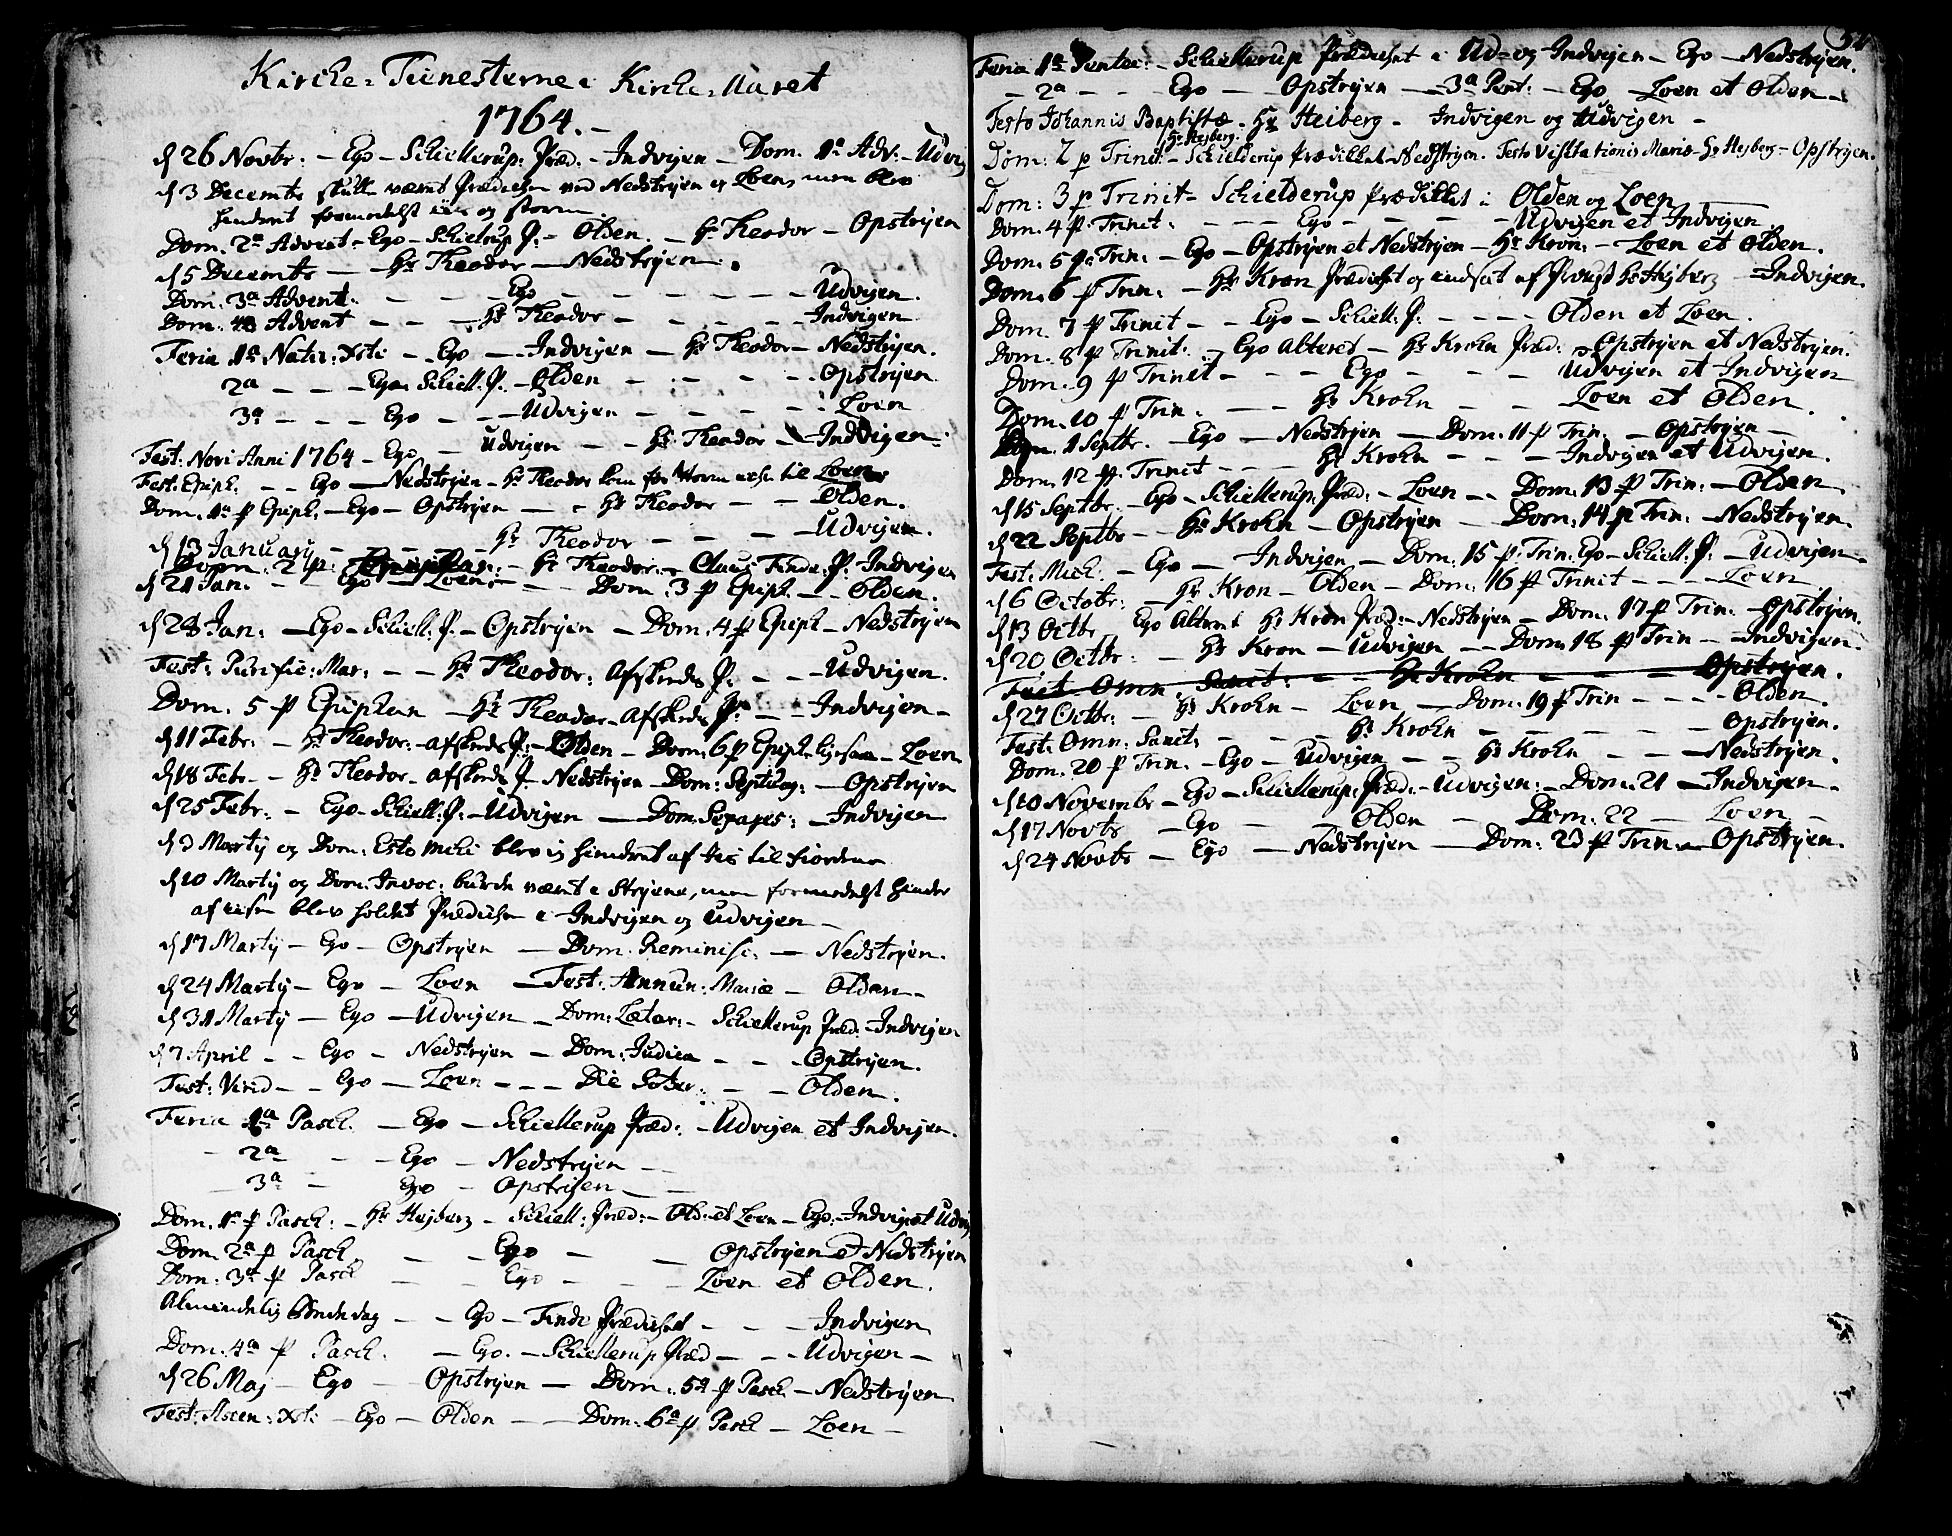 Kirche-Tienesterne i Kirche-Aaret
1764.-
d 26 Novbr: - Ego - Schiellerup: Præd: - Indvigen - Dom. 1a Adv: - Udvig
d 3 Decembr skulle været Prædichen ved Nedstryen og Loen, men blev
hindret formedelst iis og storm
Dom. 2a Advent - Ego - Schielrup P. - Olden - Hr Theodor - Opstryen
d 5 Decembr - Hr Theodor - Nedstryen.
Dom. 3a Advent. - - - Ego - - - - Udvigen.
Dom. 4a Advent - - - Hr Theodor - - - - Indvigen
Feria 1a Nativ: Xsti - Ego - Indvigen - Hr Theodor - Nedstryen.
2a - - - Ego - Schiell: P. - Olden - - - - Opstryen
3a - - - Ego - - Udvigen - - - - Loen
Fest: Novi Anni 1764 - Ego - Udvigen - - Hr Theodor - Indvigen
Fest: Epiph. - - Ego - Nedstryen - Hr Theodor kom for storm ikke til Loen
Dom. 1a p Epiph. - Ego - Opstryen - - Hr Theodor - - Olden.
d 13 January - - - Hr Theodor - - - Udvigen.
Dom: 2 p: Epiphan: - Hr Theodor - Claus Finde: P. Indvigen
d 21 Jan. - - Ego - Loen: - - Dom. 3 p Epiph. - - Olden.
d 28 Jan: - Ego - Schiell: P. - Opstryen - Dom. 4 p Epiph - Nedstryen
Fest: Purific: Mar: - - Hr Theodor: Afskeds P. - - Udvigen.
Dom. 5 p Epiphan - Hr Theodor - Afskeds P. - - Indvigen -
d 11 Febr: - Hr Theodor: - afskeds P. - Olden - Dom: 6 p Epiph. - Loen
d 18 Febr - - Hr Theodor - afskeds P. Nedstryen - Dom: Septuag: - Opstryen
d 25 Febr: - Ego - Schiell: P. - Udvigen - Dom. Sexages: - Indvigen
d 3 Marty og Dom: Esto Mihi blev ieg hindret af iis til fiorden
d 10 Marty og Dom: Invoc: burde været i Stryene, men formedelst hinder
af iisen blev holdet Prædichen i Indvigen og Udvigen -
d 17 Marty - Ego - Opstryen - Dom: Reminisc. - Nedstryen.
d 24 Marty - Ego - Loen - Fest: Annun: Mariæ - Olden -
d 31 Marty - Ego - Udvigen - Dom: Lætar: - Schiellerup Præd: - Indvigen
d 7 April - - Ego - Nedstryen - Dom: Judica - - - Opstryen.
Fest: Virid - - Ego - Loen - - - Die Jober: - - Olden.
Feria 1a Pasch. - Ego - Schiellerup Præd: - Udvigen et Indvigen.
- 2a - - Ego - Nedstryen - -
- 3a - Ego - Opstryen - -
Dom. 1a p Pasch: - Hr Hejberg - Schiell: Præd: - Old: et Loen - Ego: - Indvig: et Udvig
Dom. 2a p Pasch - - Ego - - Opstryen et Nedstryen
Dom: 3a p Pasch - - Ego - - Loen et Olden.
Almindelig Bønde dag - - Ego - Finde Prædichet - - - Indvigen
Dom. 4a p Pasch. - Ego. - Schiellerup Præd - - - Udvigen -
d 26 Maj - Ego - Opstryen - Dom: 5a p Pasch - Nedstryen
Fest: Ascen: Xsti - Ego - Olden - - Dom: 6a p Pasch - Loen -
54
Feria 1a Pentec: - Schiellerup Prædichet i Ud- og Indvigen - Ego - Nedstryen.
- 2a - - Ego - Opstryen - 3a Pent: - Ego - Loen et Olden -
Festo Johannis Baptistæ - Hr Heiberg - Indvigen og Udvigen -
Hr Hejberg.
Dom: 2 p Trinit: - Schielderup Prædikket - Nedstryen. Festo Visitationis Mariæ - Hr Hejberg - Opstryen.
Dom: 3 p Trinit - Schielderup Prædikket i Olden og Loen
Dom: 4 p. Trinit: - - - Ego - - - Udvigen et Indvigen
Dom. 5 p. Trin: - Ego - Opstryen et Nedstryen - Hr Kron: - Loen et Olden.
Dom. 6 p Trin: - Hr Kron Prædichet og indsat af Provst Hr Hejberg - Indvigen.
Dom. 7 p Trinit - - Ego - Schiell: P. - - - - Olden et Loen.
Dom. 8 p Trinit: - Ego Alteret - Hr Krohn Præd: Opstryen et Nedstryen.
Dom. 9 p Trinit - - - Ego - - - Udvigen et Indvigen
Dom. 10 p Trin: - - Hr Krohn - - Loen et Olden.
Dom. 1 Septbr. - Ego - Nedstryen - Dom. 11 p Trin. - Opstryen -
Dom. 12 p Trinit - - - Hr Krohn - - - Indvigen et Udvigen.
d 15 Septbr. - Ego - Schiellerup: Præd: - Loen - - Dom. 13 p Trin: - Olden.
d 22 Septbr - Hr Krohn - Opstryen - Dom. 14 p Trin. - Nedstryen.
Fest: Mich: - Ego - Indvigen - Dom. 15 p. Trin. Ego - Schiell: P. - Udvigen
d 6 Octobr: - Hr Kron - Olden - Dom: 16 p Trinit - - - Loen
d 13 Octbr - Ego Alteret Hr Kron Præd: - Nedstryen - Dom. 17 p Trin: - Opstryen.
d 20 Octbr: - Hr Kron - Udvigen - Dom. 18 p Trin - - Indvigen.
Fest Omn: Sanct: - - Hr Krohn - - - Opstryen.
d 27 Octbr: - Hr Krohn - Loen - Dom. 19 p Trin - - - Olden.
Fest: Omn: Sanct: - - - Hr Krohn - - - - Opstryen.
Dom. 20 p Trin. - Ego - Udvigen - - Hr Krohn - - - Nedstryen.
d 10 Novembr - Ego - Schiellerup: Præd: - Udvigen: - Dom: 21 - Indvigen -
d 17 Novbr - Ego - - Olden - Dom: 22 - Loen -
d 24 Novbr - Ego - Nedstryen - Dom: 23 p Trin - Opstryen.